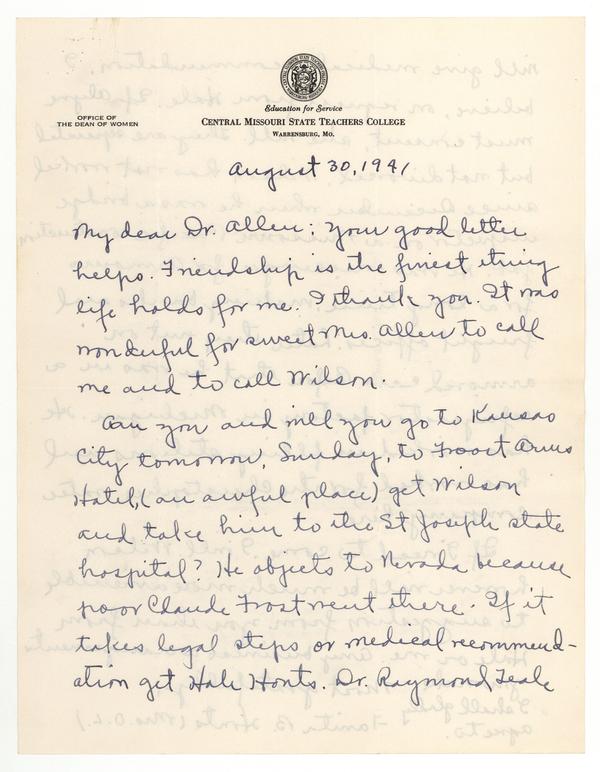 Education for Service
OFFICE OF
THE DEAN OF WOMEN
CENTRAL MISSOURI STATE TEACHERS COLLEGE
WARRENSBURG, MO.
August 30, 1941
My dear Dr. Allen; your good letter
helps. Friendship is the finest thing
life holds for me. I thank you. It was
wonderful for sweet Mrs. Allen to call
me and to call Wilson.
Can you and will you go to Kansas
City tomorrow, Sunday, to Froost Arms
Hotel, (an awful place) get Wilson
and take him to the St Joseph state
hospital? He objects to Nevada because
poor Claude Frost went there. If it
takes legal steps or medical recommend-
ation get Hale Honts. Dr. Raymond Teale